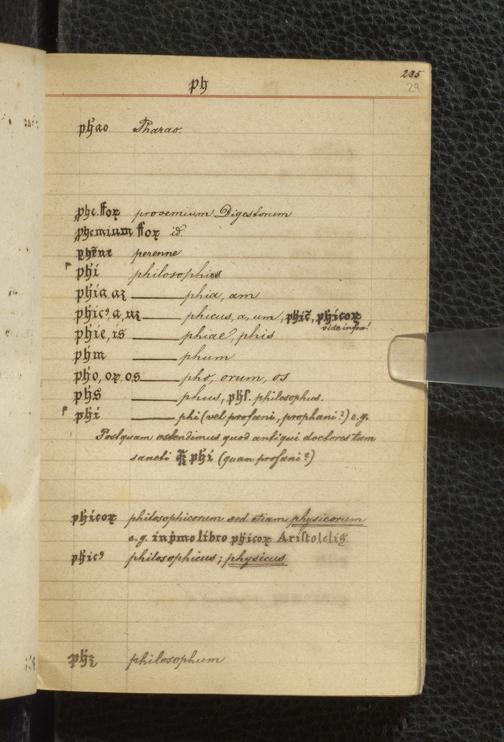 ph
285
29
phao Pharao.
phe. ffoꝝ prooemium Digestorum
phemium ffoꝝ id.
perenne
phi philosophies
phia, aꝫ ——— phia, am
phicꝰ, a, uꝫ ——— phicus, a, um, phic̄, phicoꝝ
vide infra!
phie, is ——— phiae, phis
phm ——— phum
pho, oꝝ, os ——— pho, orum, os
phs ——— phus, phs. philosophus.
phi ——— phi (vel profani, prophani?) e.g.
Postquam ostendimus quod antiqui doctores tam
sancti phi (quam profani?)
phicoꝝ philosophicorum sed etiam physicorum
e.g. in pmo libro phicoꝝ Aristotelis
phicꝰ philosophicus; physicus
phꝫ philosophum